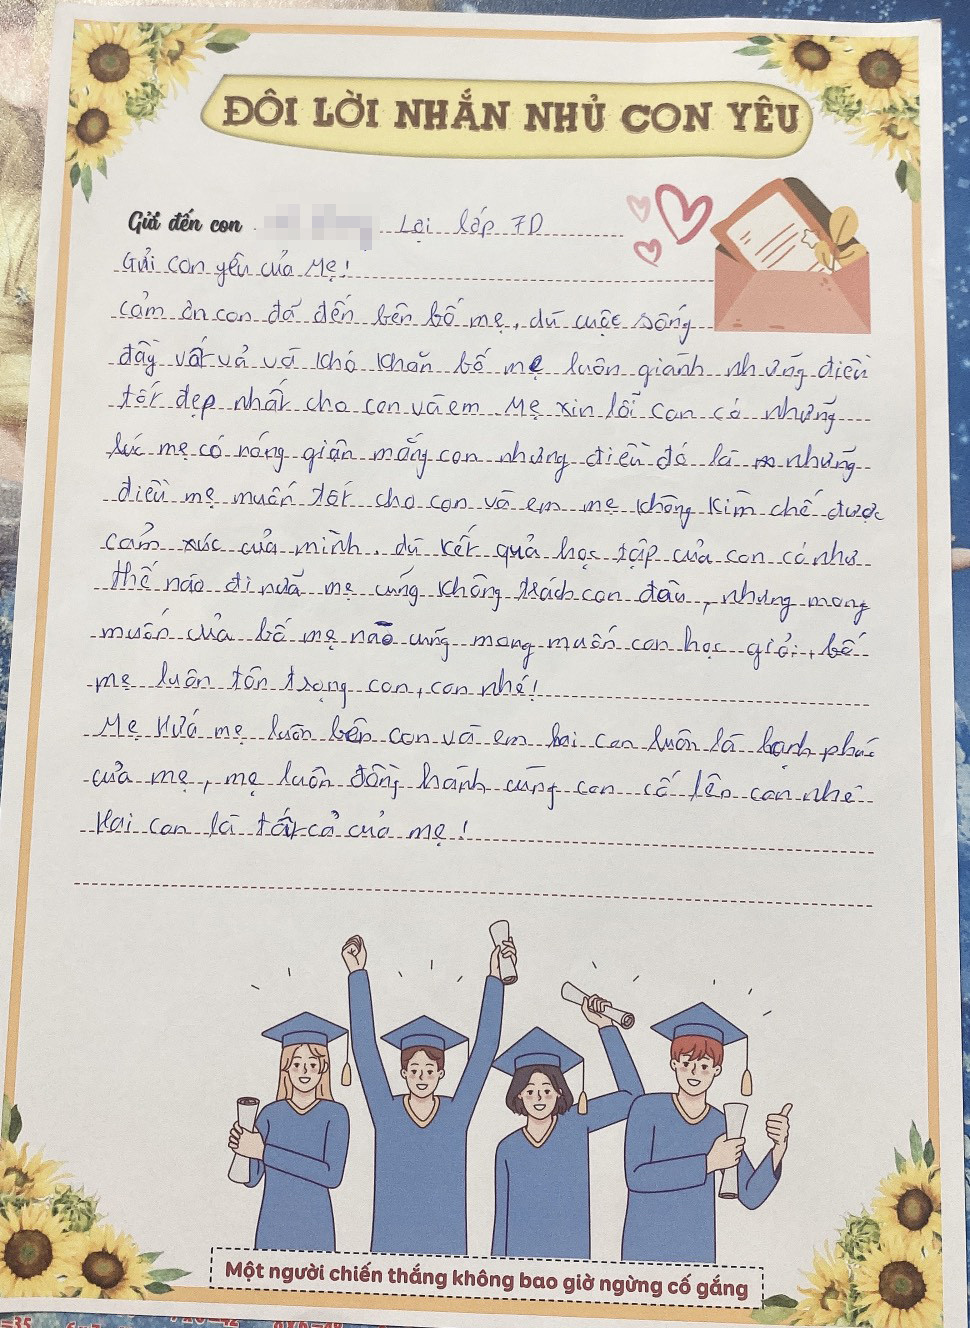 ĐÔI LỜI NHẮN NHỦ CON YÊU
Gửi đến con Lại lớp 7D
Gửi con yêu của Mẹ!
cảm ơn con đã đến bên bố mẹ, dù cuộc sống
đầy vất vả và khó khăn bố mẹ luôn giành những điều
tốt đẹp nhất cho con và em. Mẹ xin lỗi con có những
lúc mẹ có nóng giận mắng con nhưng điều đó là những
điều mẹ muốn tốt cho con và em mẹ không kìm chế được
cảm xúc của mình. dù kết quả học tập của con có như
thế nào đi nữa mẹ cũng không trách con đâu, nhưng mong
muốn của bố mẹ nào cũng mong muốn con học giỏi, bố
mẹ luôn tôn trọng con, con nhé!
Mẹ Hứa mẹ luôn bên con và em hai con luôn là hạnh phúc
của mẹ, mẹ luôn đồng hành cùng con cố lên con nhé
Hai con là tất cả của mẹ!
Một người chiến thắng không bao giờ ngừng cố gắng